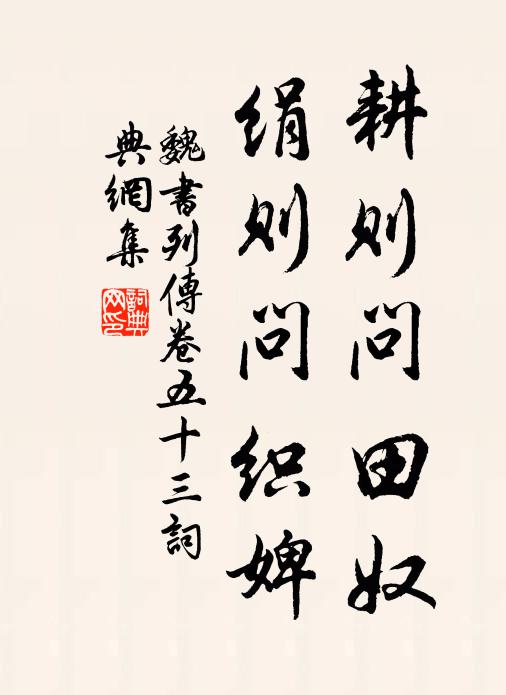 耕则问田奴
绢则问织婢
魏書列傳卷五十三詞
典網集
詞典
网印